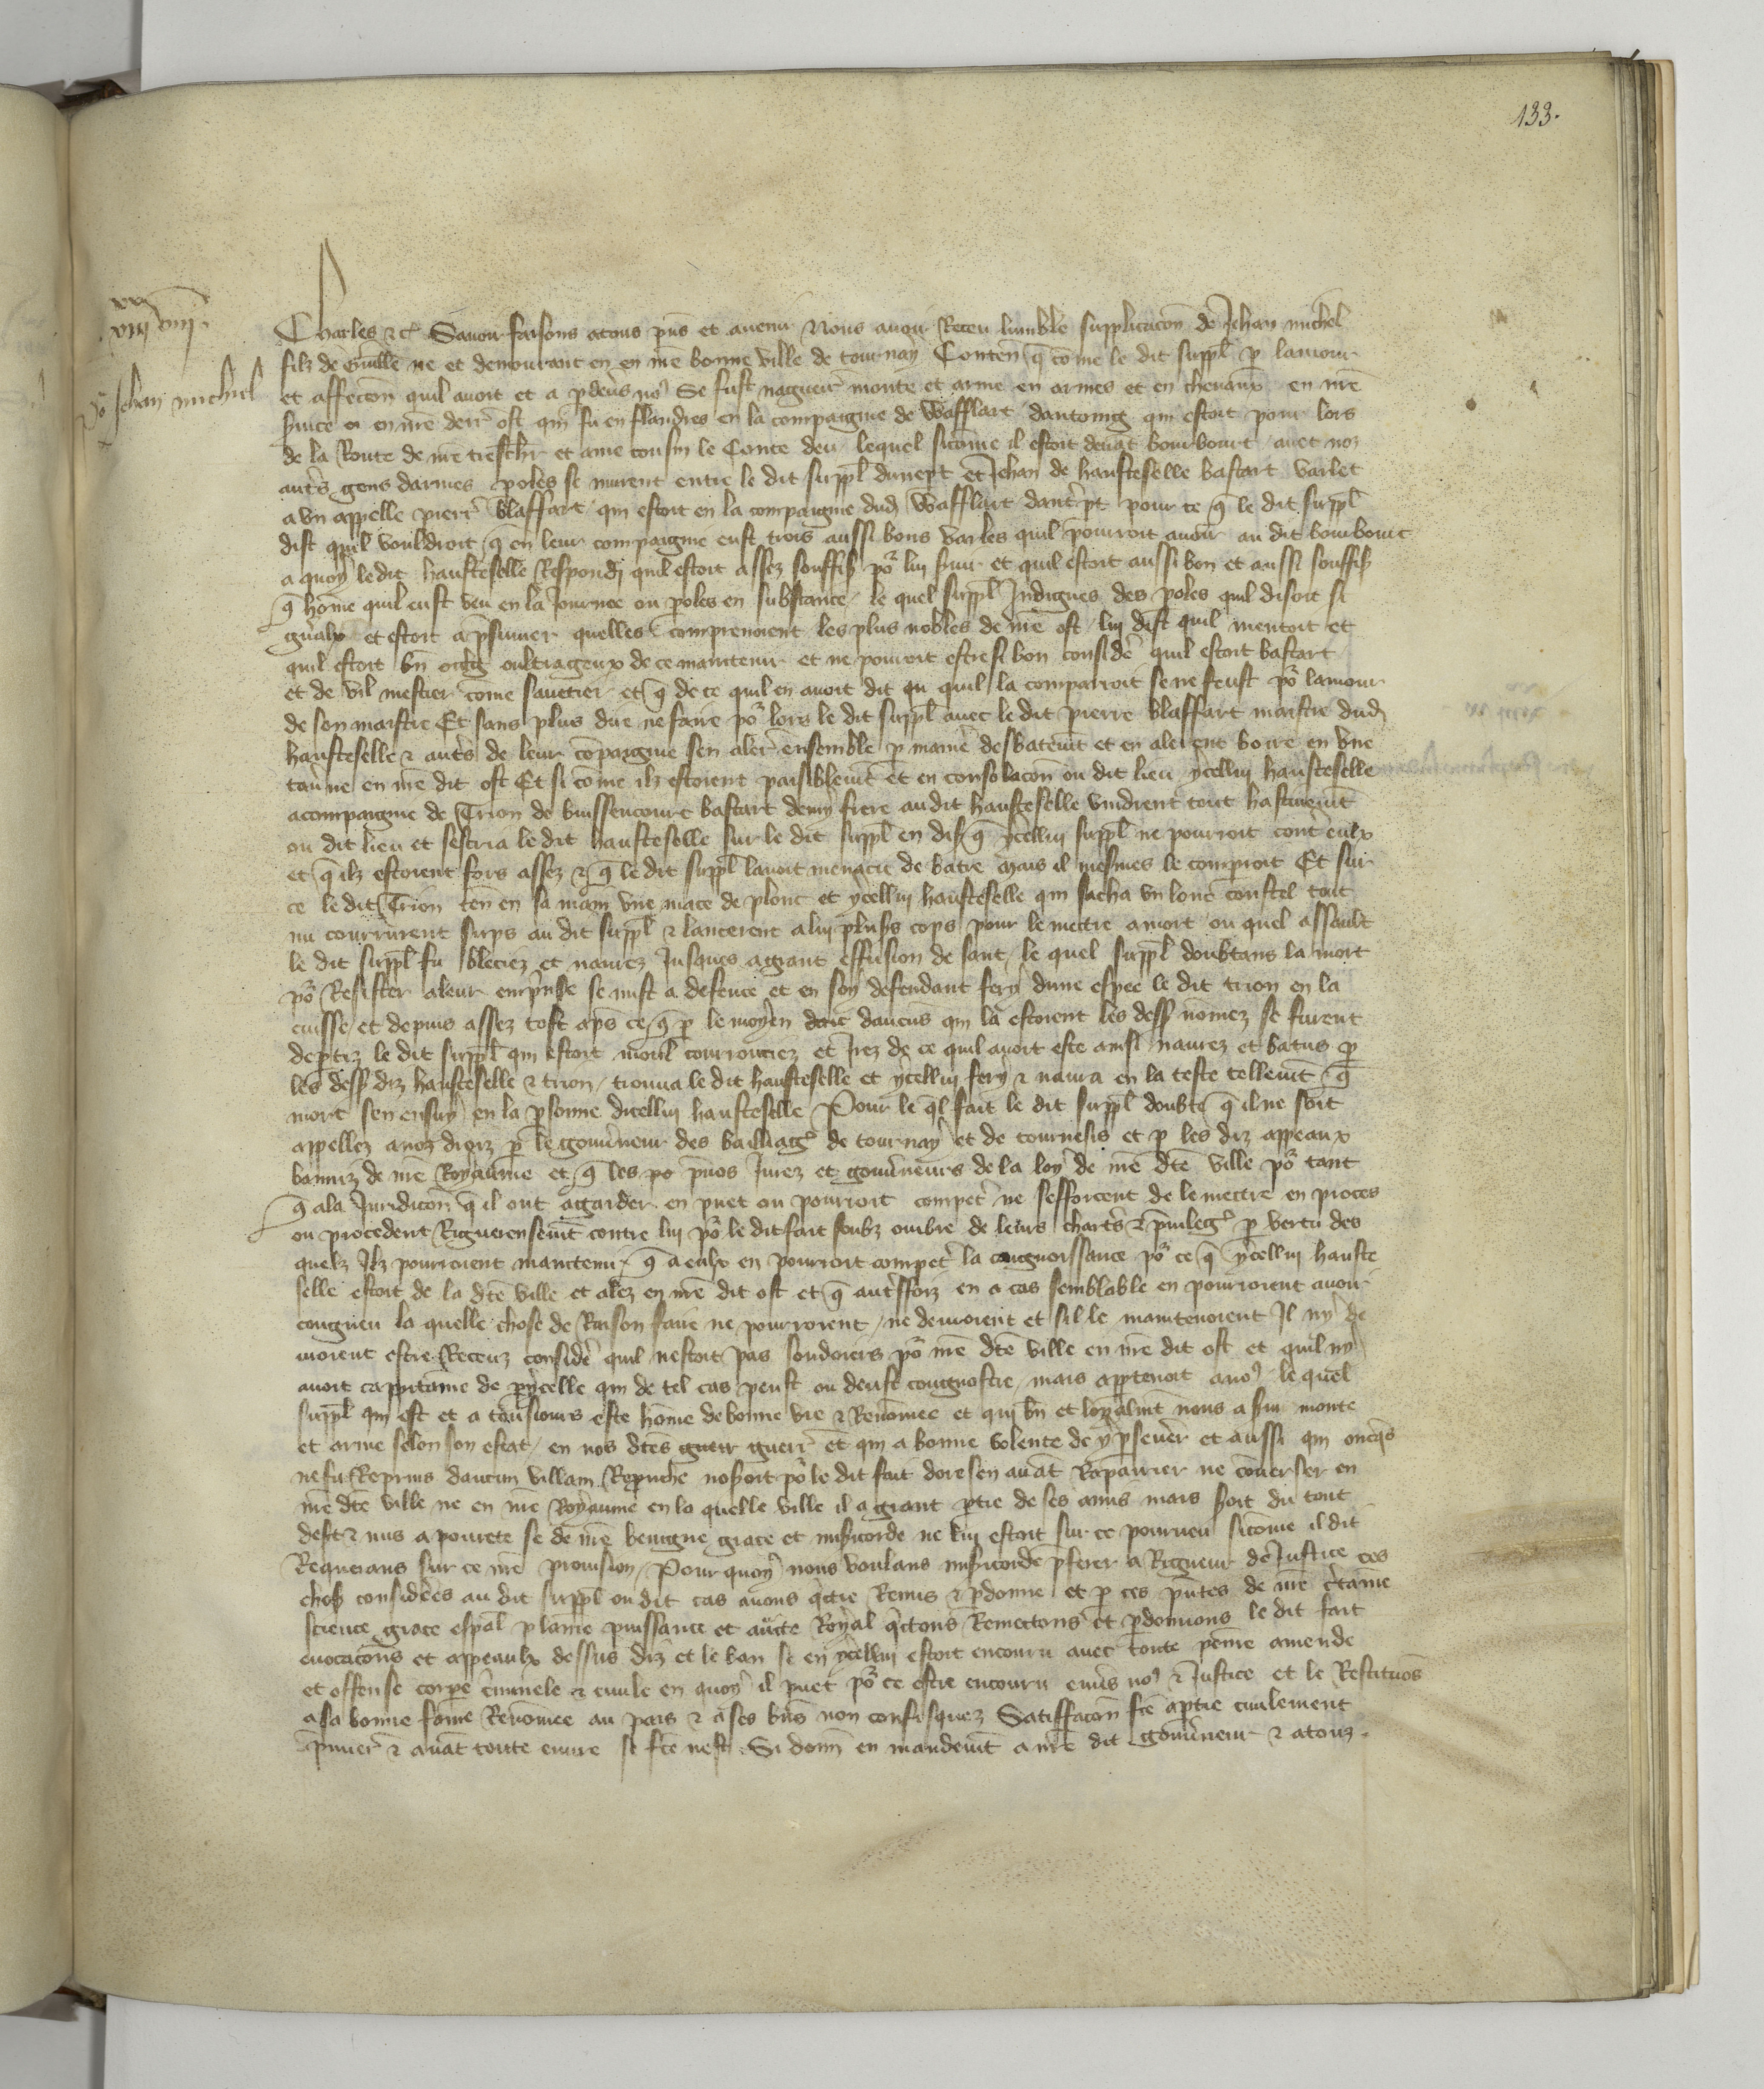 133.
xx
viij viij.
Po Jehan Michiel
Charles etc. Savoir faisons a tous pns et avenir Nous avoir Receu lumble supplicacon de Jehan Michel
filz de Guille ne et demourant en en nre bonne ville de tournay Conten q come le dit suppl p lamour
et affeccon quil avoit et a p devs nos Se fust nagueire monte et arme en armes et en chevaux en nre
svice et en nre derr ost qui fu en flandres en la compaignie de Wafflart dantoing qui estoit pour lors
de la Route de nre treschr et ame cousin le Conte deu lequel sicome il estoit devat bourbourt avec noz
autrs gens darmes poles se murent entre le dit suppl dunept et Jehan de hausteselle bastart varlet
a un appelle pierr blaffart qui estoit en la compaignie dud Wafflart dautrept pour ce q le dit suppl
dist quil vouldroit q en leur compaignie eust trois aussi bons varles quil pourroit avoir au dit bourbourc
a quoy ledit hausteselle Respondi quil estoit assez souffis po lui svir et quil estoit aussi bon et aussi souffis
q home quil eust veu en la Journee ou poles en substance le quel suppl Indignes des poles quil disoit si
gnalx et estoit a psumer quelles comprenoient les plus nobles de nre ost lui dist quil mentoit et
quil estoit un oultrageux de ce maintenir et ne pouoit estre si bon consider quil estoit bastart
et de vil mestier come savetier et q de ce quil en avoit dit quil la comparroit se ne feust po lamour
de son maistre Et sans plus dire ne faire po lors le dit suppl avec le dit pierre blaffart maistre dud
hausteselle et autrs de leur copaignie sen aler ensemble p manie desbatemt et en alerent boire en une
tavne en nre dit ost Et si come ilz estoient paisiblemt et en consolacon ou dit lieu ycellui hausteselle
acompaignie de Trion de buissencourt bastart demy frere au dit hausteselle vindrent tout hastivemt
ou dit lieu et sescria le dit hausteselle sur le dit suppl en dis q ycellui suppl ne pourroit contr eulx
et q ilz estoient fors assez et q le dit suppl lavoit menacie de batre mais il mesmes le comproit Et sur
ce le dit Trion ten en sa main une mace de plonc et ycellui hausteselle qui sacha un lonc coustel tout
nu coururent sups au dit suppl et lancerent a lui plusrs cops pour le mettre a mort ou quel assault
le dit suppl fu bleciez et navrez Jusques a grant effusion de sanc le quel suppl doubtans la mort
po Resister a leur emprinse se mist a defence et en soy defendant fery dune espee le dit trion en la
cuisse et depuis assez tost aps ce q p le moyen daucuns qui la estoient les dess nomez se furent
deptiz le dit suppl qui estoit moul courrouciez et Irez de ce quil avoit este ainsi navrez et batus p
les dess diz hausteselle et trion trouva le dit hausteselle et ycellui fery et navra en la teste tellemt q
mort sen ensuy en la psonne dicellui hausteselle Pour le ql fait le dit suppl doubte q il ne soit
appellez a noz droiz p le gouvneur des bailliages de tournay et de tournesis et p les diz appeaux
banniz de nre Royaume et q les pvos Jurez et gouvneurs de la loy de nre dte ville po tant
q a la Juridicon q il ont a garder en puet ou pourroit competr ne sefforcent de le mettre en proces
ou procedent Riguereusemt contre lui po le dit fait soubz umbre de leurs chartrs et privileges p vertu des
quelz Ilz pourroient maintenir q a eulx en pourroit competr la congnoissance po ce q ycellui hauste
selle estoit de la dte ville et alez en nre dit ost et q autrsfoiz en cas semblable en pourroient avoir
congneu la quelle chose de Raison faire ne pourroient ne devroient et sil le maintenoient Il ny de
vroient estre Receuz consider quil nestoit pas soudoiers po nre dte ville en nre dit ost et quil ny
avoit cappitaine de pycelle qui de tel cas peust ou deust congnoistre mais apptenoit a nos le quel
suppl qui est et a tousiours este home de bonne vie et Renomee et qui bn et loyalmt nous a svi monte
et arme selon son estat en nos dtes guerr et qui a bonne volente de y psevrer et aussi qui oncqs
ne fu Reprins daucun villain Reprouche noseroit po le dit fait doresenavat Repairier ne converser en
nre dte ville ne en nre Royaume en la quelle ville il a grant ptie de ses amis mais seroit du tout
dest et mis a povrete se de nre benigne grace et misicorde ne lui estoit sur ce pourveu sicome il dit
Requerans sur ce nre provision Pour quoy nous voulans misicorde pferer a Rigueur de Justice ces
chos considees au dit suppl ou dit cas avons qctie Remis et pdonne et p ces pntes de nre ctaine
science grace espal plaine puissance et aucte Royal qctons Remettons et pdonnons le dit fait
evocacons et appeaulx dessus diz et le ban se en ycellui estoit encouru avec toute peine amende
et offense corpe criminele et civile en quoy il puet po ce estre encouru envs nos et Justice et le Restituos
a sa bonne fame Renomee au pais et a ses bns non confisquez Satiffacon fce a ptie civilement
pmier et avat toute euvre se fce nest Si donn en mandemt a nre dit gouvneur et a touz